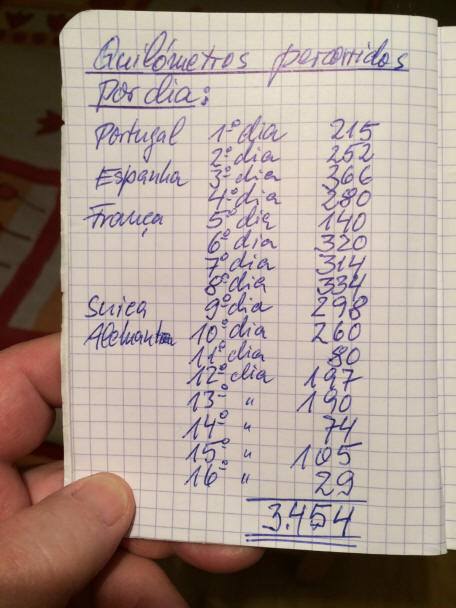 Quilómetros percorridos
por dia:
Portugal 1º dia 215
2º dia 252
Espanha 3º dia 366
4º dia 280
França 5º dia 140
6º dia 320
7º dia 314
8º dia 334
Suiça 9º dia 298
Alemanha 10º dia 260
11º dia 80
12º dia 197
13º " 190
14º " 74
15º " 105
16º " 29
3.454